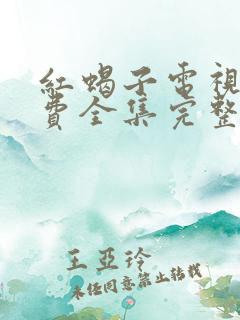 紅蝎子電視
費全集完整
王亞玲
未經同意禁止轉載